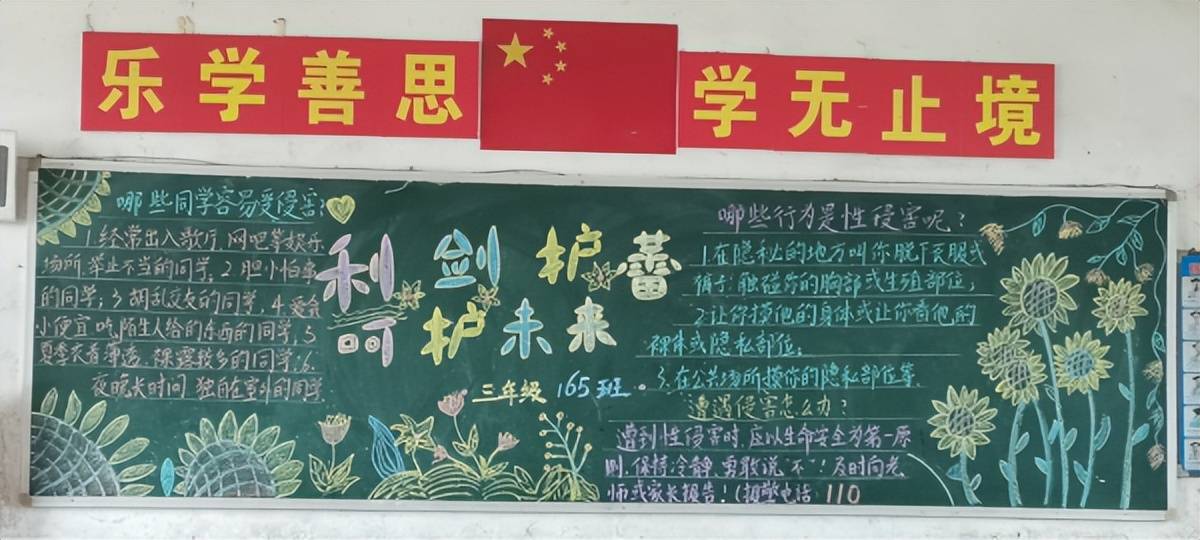 乐学善思
学无止境
哪些同学容易受侵害?
1.经常出入歌厅、网吧等娱乐
场所,举止不当的同学。2.胆小怕事
的同学;3.胡乱交友的同学,4.爱贪
小便宜吃陌生人给的东西的同学;5
夏季衣着薄透、裸露较多的同学;6.
夜晚长时间独自在室外的同学
利剑护蕾
呵护未来
三年级 165班
哪些行为是性侵害呢?
1.在隐私的地方叫你脱下衣服或
裤子,触碰你的胸部或生殖部位;
2.让你摸他的身体或让你看他的
裸体或隐私部位;
3.在公共场所摸你的隐私部位等
遭遇侵害怎么办?
遭到性侵害时,应以生命安全为第一原
则,保持冷静,勇敢说"不"!及时向老
师或家长报告!(报警电话 110